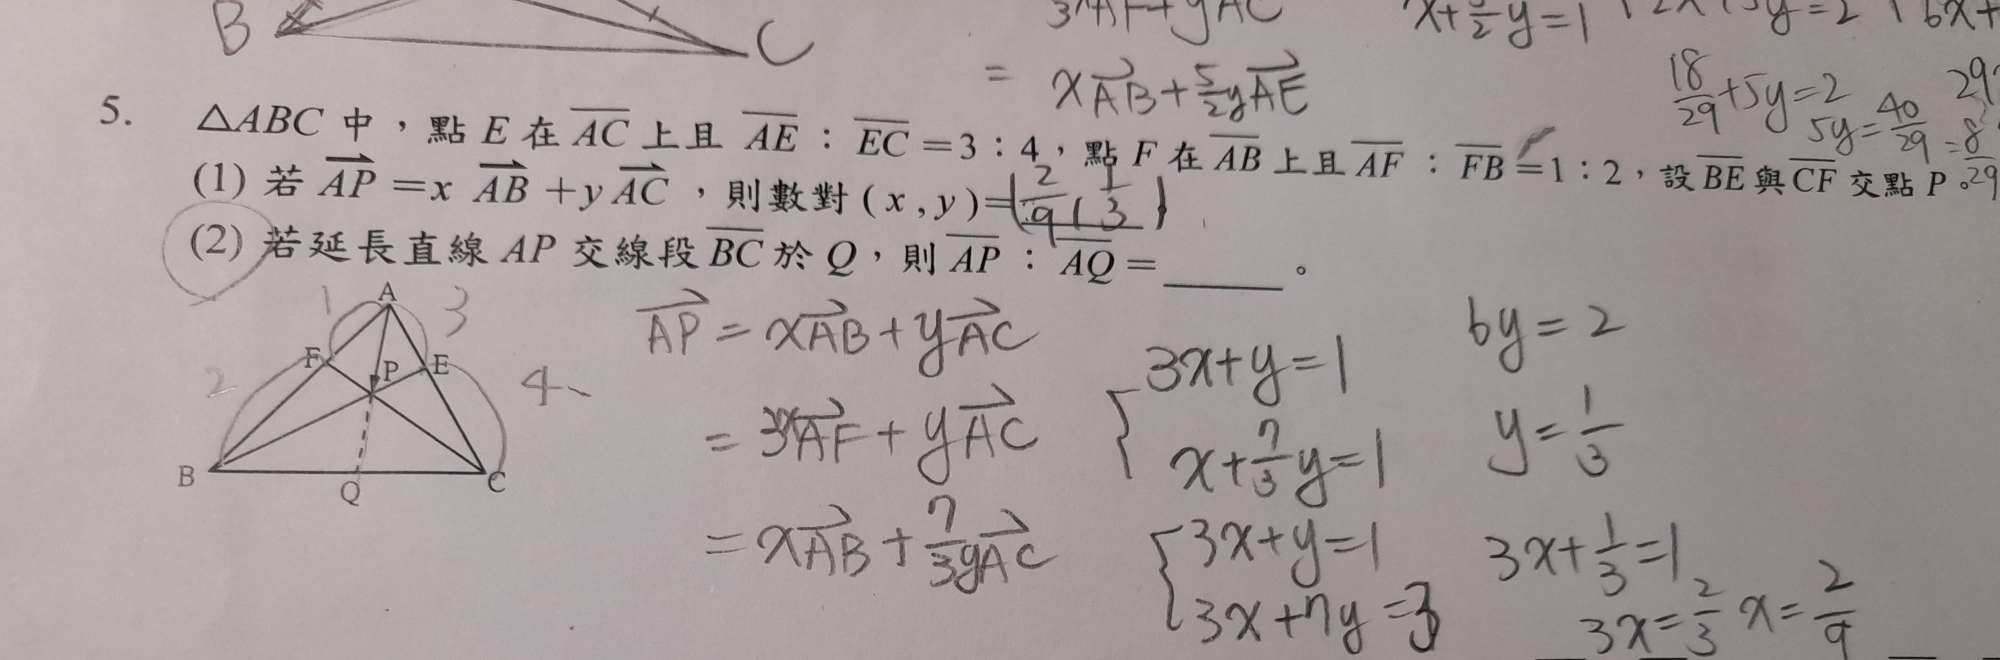 B
C
3AF+yAC
x+5/2y=1
= xAB+5/2yAE
18/29+5y=2
5y=40/29
=8/29
5. △ABC 中,點 E 在 AC 上且 AE : EC =3:4,點 F 在 AB 上且 AF : FB =1:2,設 BE 與 CF 交點 P。
(1) 若 AP =x AB +y AC ,則數對 (x,y)=(2/9, 1/3)
(2) 若延長直線 AP 交線段 BC 於 Q,則 AP : AQ =______。
A
1
3
F
E
P
2
4
B
Q
C
AP = xAB+yAC
= 3xAF+yAC
= xAB+7/3yAC
3x+y=1
x+7/3y=1
3x+y=1
3x+7y=3
6y=2
y=1/3
3x+1/3=1
3x=2/3 x=2/9